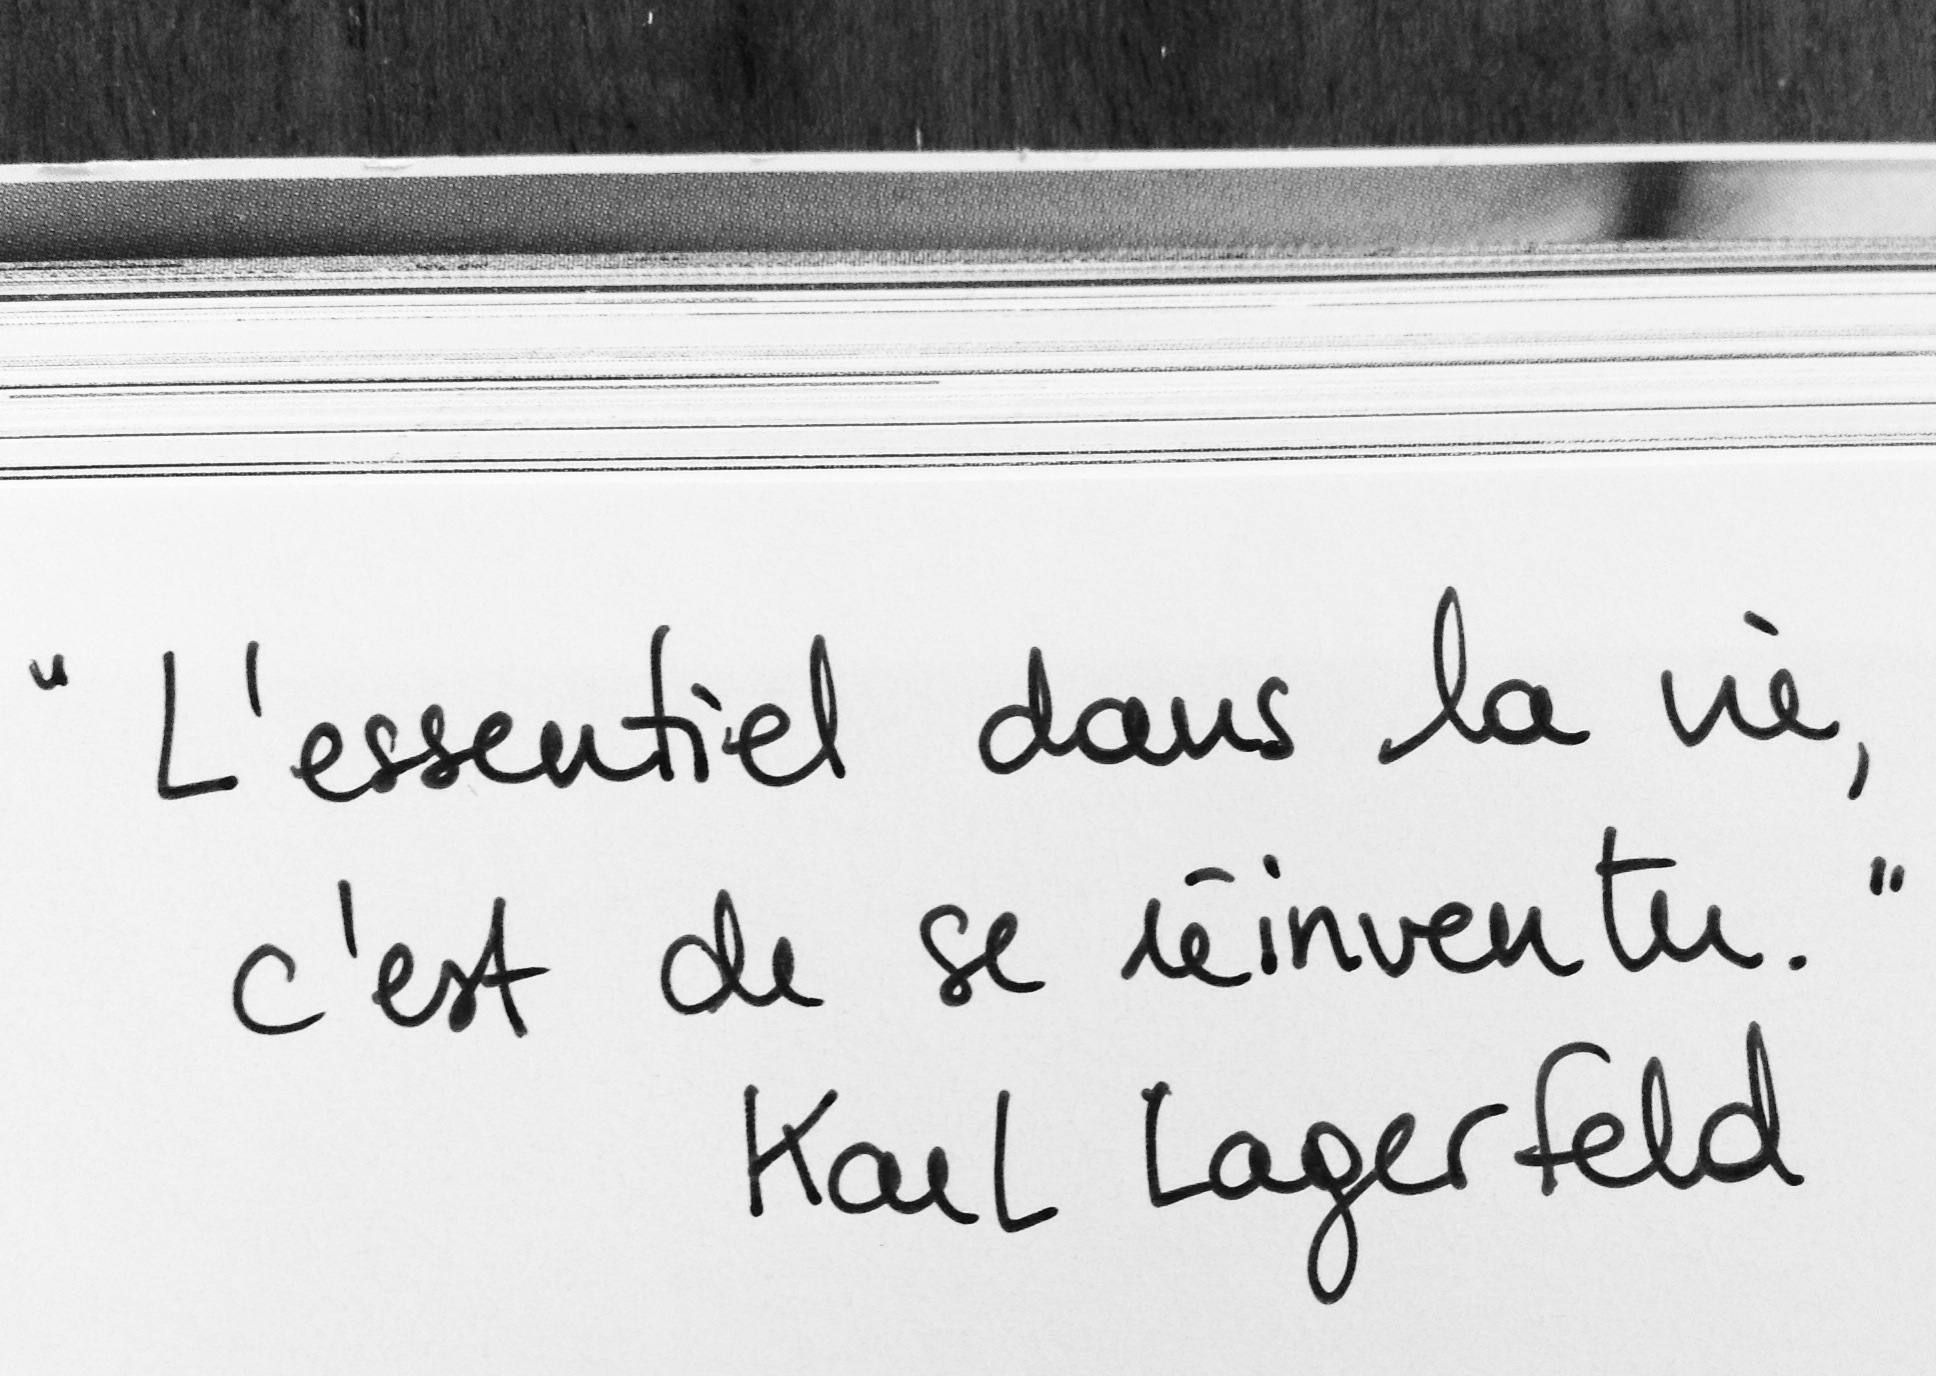 "L'essentiel dans la vie,
c'est de se réinventer."
Karl Lagerfeld